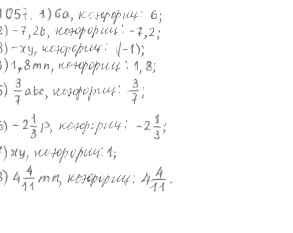 1057. 1) 6a, коэффиц: 6;
2) -7,2b, коэффиц: -7,2;
3) -xy, коэффиц: (-1);
4) 1,8mn, коэффиц: 1,8;
5) 3/7 abc, коэффиц: 3/7;
6) -2 1/3 p, коэффиц: -2 1/3;
7) xy, коэффиц: 1;
8) 4 4/11 mn, коэффиц: 4 4/11.